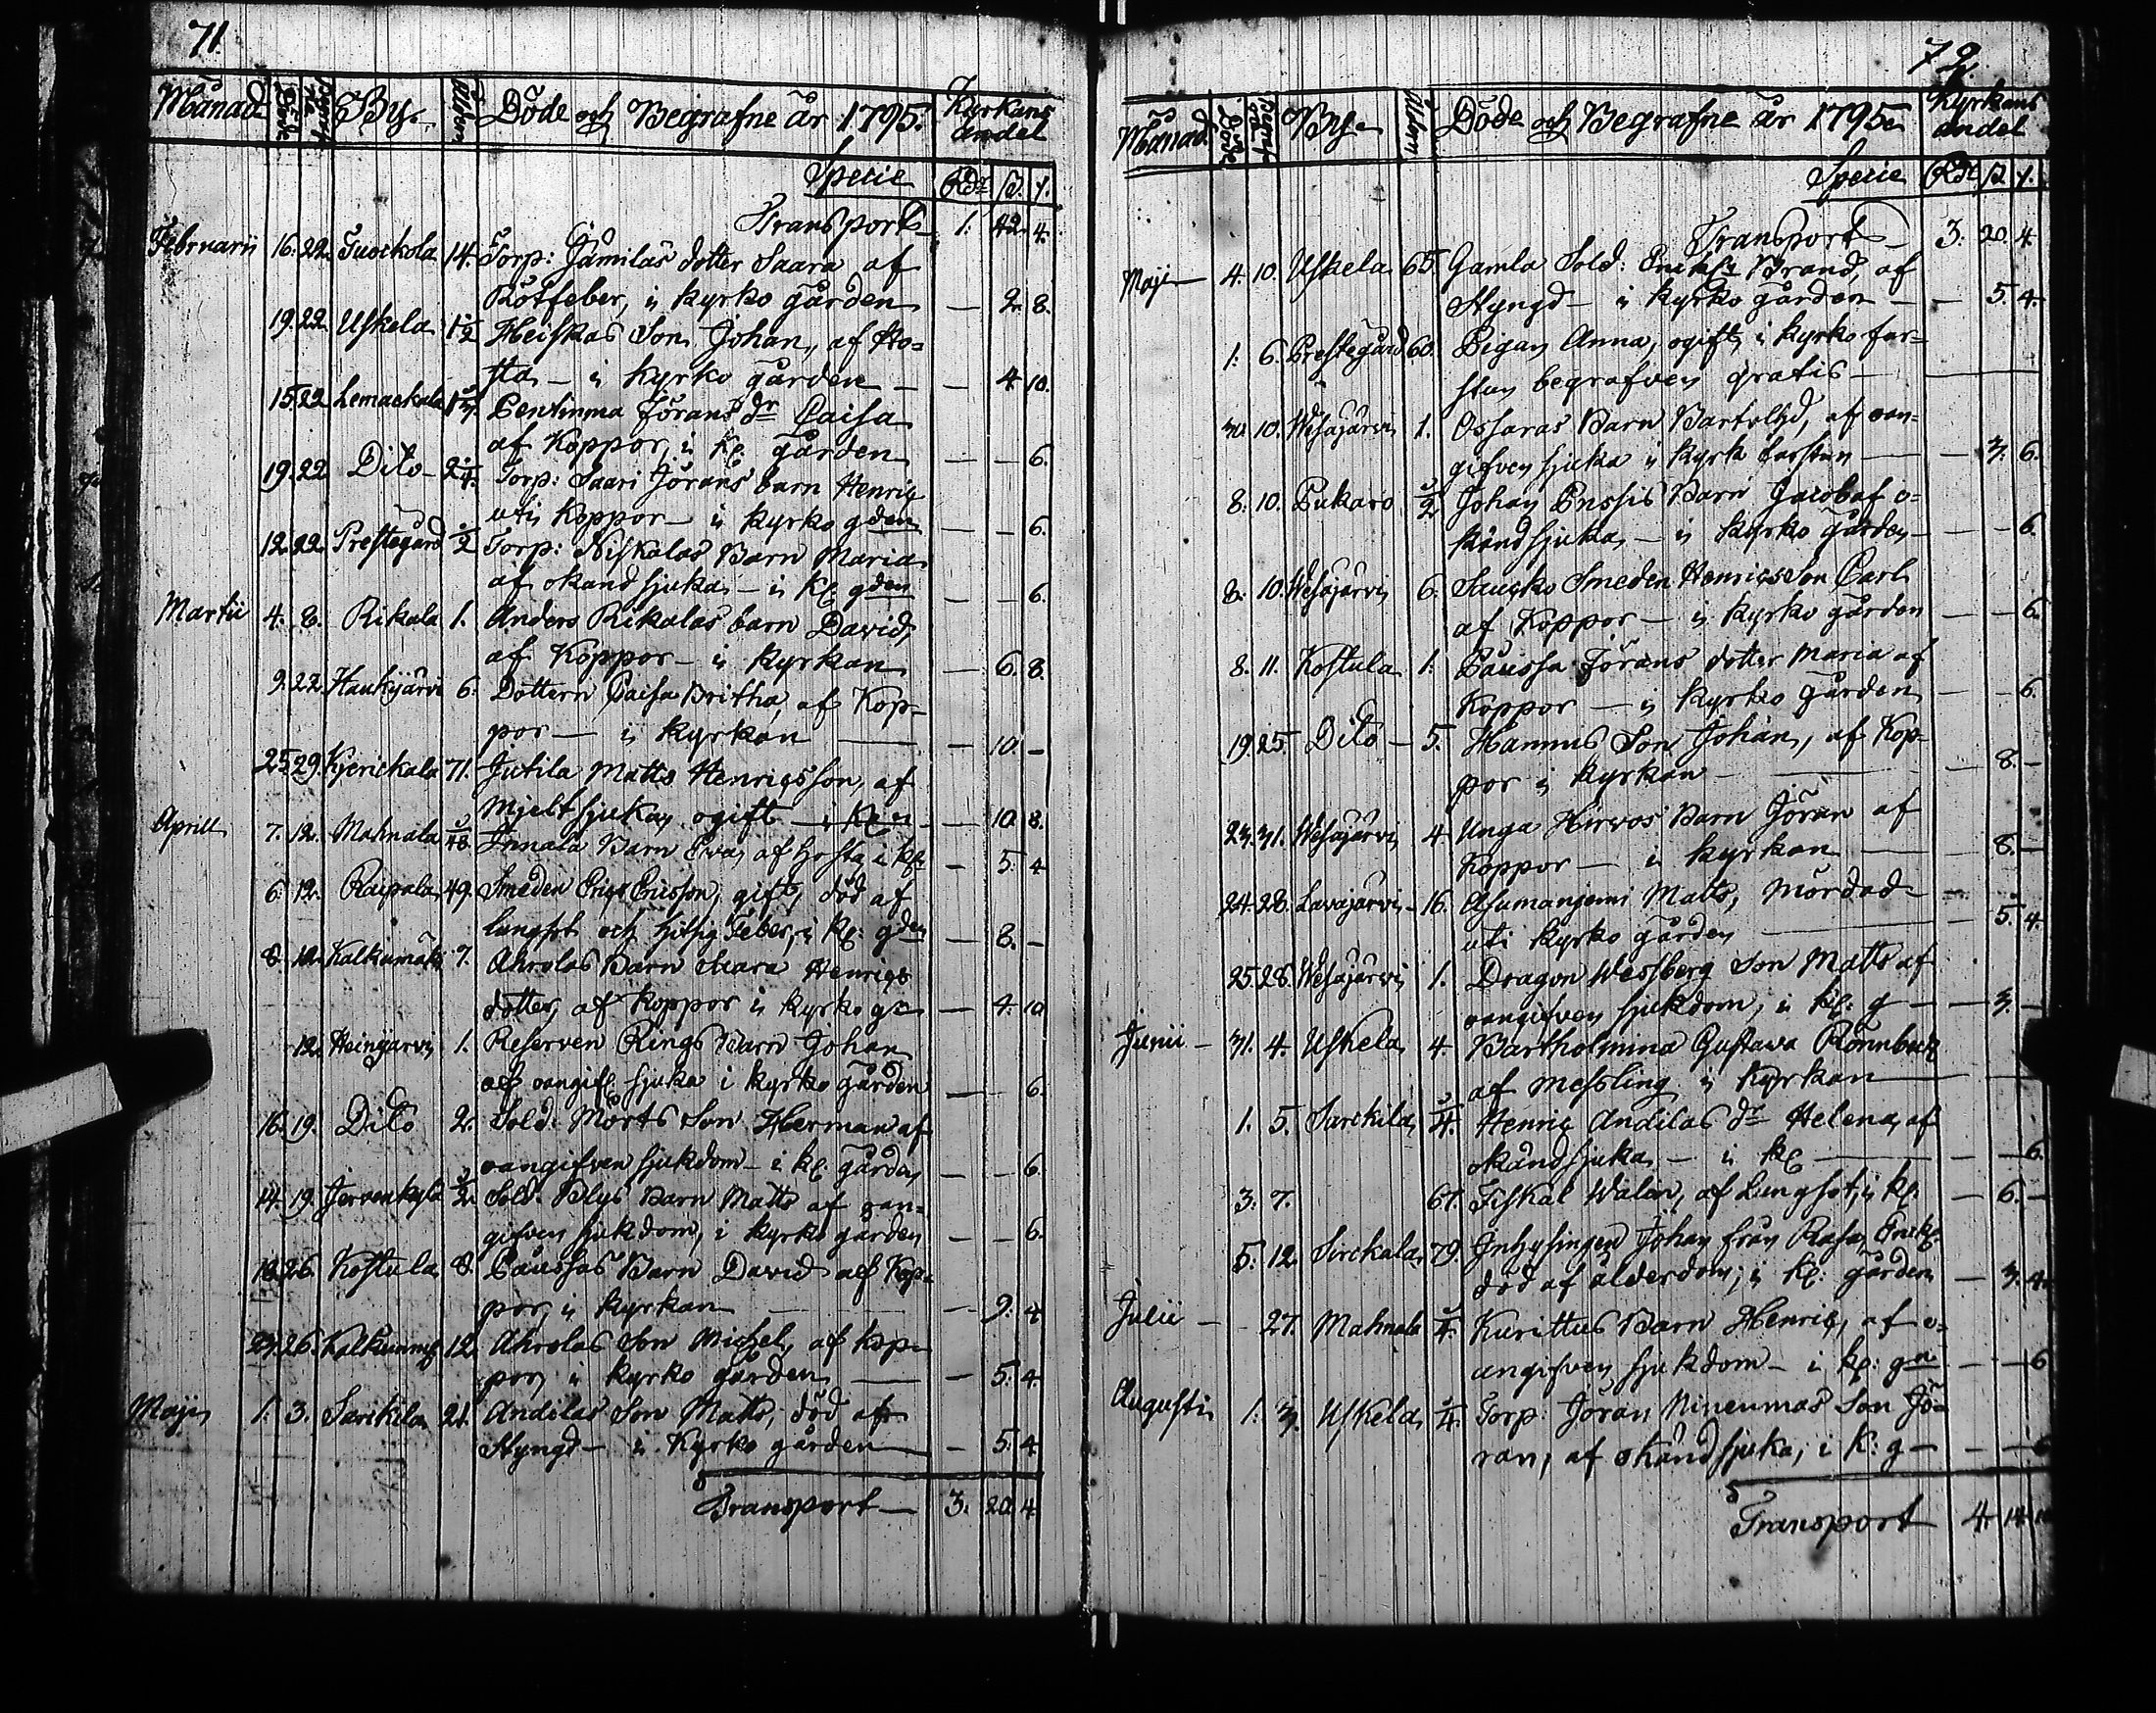 71.
Månad Döde Begrafne By Ålder Döde och Begrafne år 1795. Kyrkans andel
Specie Rdr ß. r.
Transport 1. 42. 4.
Februarii 16. 22. Tuockola 14. Torp: Jämiläs dotter Saara af
Rötfeber, i kyrko gården — 2. 8.
19. 22. Uskela 1½ Heiskas Son Johan, af Ho=
sta — i kyrko gården — — 4. 10.
15. 22. Lemackala Pentinma Jörans dr Caisa
af Koppor, i K: gården — — 6.
19. 22. Dito Torp: Saari Jörans barn Henric
uti Koppor — i kyrko gden — — 6.
12. 22. Prestegård Torp: Niskalas Barn Maria
af okänd sjuka — i K: gden — — 6.
Martii 4. 8. Rikala 1. Anders Rikalas barn David,
af Koppor — i kyrkan — 6. 8.
9. 22. Haukijärvi 6. Dottern Caisa Britha, af Kop=
por — i kyrkan — — 10. —
25. 29. Kierickala 71. Jutila Matts Henricsson, af
Mjeltsjuka, ogift — — 10. 8.
Aprill 7. 12. Mahnala Innala Barn Eva, af hosta, i — 5. 4
6. 12. Raipala 49. Smeden Eric Ericsson, gift, död af
lungsot och hitsig Feber, i K: gden — 8. —
8. 12. Kalkumäki 7. Ahrolas Barn Henrics
dotter, af Koppor i kyrko gn — 4. 10
12. Heinijärvi 1. Reserven Rings Barn Johan
af oangifl. sjuka i kyrko gården — — 6.
16. 19. Dito 2. Sold: Mörts Son Herman af
oangifven sjukdom — i K: gården — — 6.
14. 19. Jervenkylä Sold: Blys Barn Matts af oan=
gifven sjukdom, i kyrko gården — — 6.
18. 26. Kostula 8. Paussas Barn David af Kop=
por, i kyrkan — — 9. 4
23. 26. 12. Ahrolas Son Michel, af kop=
por, i kyrko gården — — 5. 4.
Maji 1. 3. Sarckila 21. Andilas Son Matts, död af
Styngd — i Kyrko gården — 5. 4
Transport — 3. 20. 4.
72.
Månad Döde Begrafne By Ålder Döde och Begrafne år 1795. Kyrkans andel
Specie Rdr ß. r.
Transport — 3. 20. 4.
Maji 4. 10. Uskela 65. Gamla Sold: Brand, af
Styngd — i kyrko gården — — 5. 4.
1. 6. Prestegård 60. Pigan Anna, ogift, i kyrko far=
stun begrafven gratis —
30. 10. Wesajärvi 1. Ossaras Barn af oan=
gifven sjuka i kyrk farstun — — 3. 6.
8. 10. Pukaro Johan Enssis Barn Jacob af o=
känd sjuka, — i Kyrko gården — — — 6.
8. 10. Wesajärvi 6. Saucko Smeden Henrics Son Carl
af Koppor — i kyrko gården — — 6.
8. 11. Kostula 1. Paussa Jörans dotter Maria af
Koppor — i kyrko gården — — 6.
19. 25. Dito — 5. Hannus Son Johan, af Kop=
por i kyrkan — — 8. —
23. 31. Wesajärvi 4. Unga Hirvos Barn Jöran af
Koppor — i kyrkan — 8. —
24. 28. Lavajärvi — 16. Matts, Mördad
uti kyrko gården — 5. 4.
25. 28. Wesajärvi 1. Dragon Westberg Son Matts af
oangifven sjukdom, i K: g — — 3. —
Junii — 31. 4. Uskela 4. Bartholmina Gustawa Rönnback
af Messling i Kyrkan —
1. 5. Sarckila Henric Andilas dr Helena, af
okänd sjuka — i K — — 6.
3. 7. 67. Fiskal Walen, af Lungsot, i K: — 6. —
5. 12. Sirckala 79. Inhysingen Johan från Rasa,
död af ålderdom, i K: gården — 3. 4.
Julii — 27. Mahnala Kurittus Barn Henric, af o=
angifven sjukdom — i K: gn — — 6
Augusti 1. 3. Uskela Torp: Jöran Ninenmas Son Jö=
ran, af okänd sjuka, i K: g — — — 6
Transport 4. 14. 10